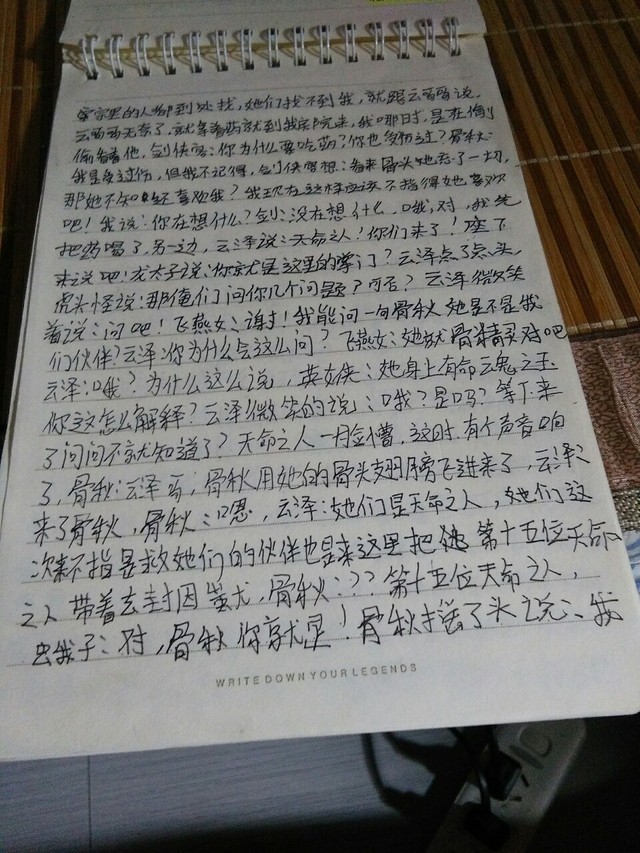 宗里的人都到处找，她们找不到我，就跟云哥哥说，
云哥哥无奈了，就拿着药就到我那院来，我那时，是在偷
偷看他，剑侠客：你为什么要吃药？你也受伤过？骨秋：
我是受过伤，但我不记得，剑侠客想：看来骨头她忘了一切，
那她不知还喜欢我？我现在这样应该不指得她喜欢
吧！我说：你在想什么？剑：没在想什么，哦，对，我先
把药喝了，另一边，云泽说：天命之人！你们来了！座下
来说吧！龙太子说：你就是这里的掌门？云泽点了点头，
虎头怪说：那俺们问你几个问题？可否？云泽微笑
着说：问吧！飞燕女：谢！我能问一句骨秋她是不是我
们伙伴？云泽：你为什么会这么问？飞燕女：她就骨精灵对吧
云泽：哦？为什么这么说，英女侠：她身上有命魂之玉
你这怎么解释？云泽微笑的说：哦？是吗？等下来
了问问不就知道了？天命之人一脸懵，这时有个声音响
了，骨秋：云泽哥，骨秋用她的骨头翅膀飞进来了，云泽：
来了骨秋，骨秋：嗯，云泽：她们是天命之人，她们这
次来不指是救她们的伙伴也是来这里把 第十五位天命
之人带着去封因蚩尤，骨秋：？？第十五位天命之人，
对，骨秋你就是！骨秋摇了头说：我
WRITE DOWN YOUR LEGENDS